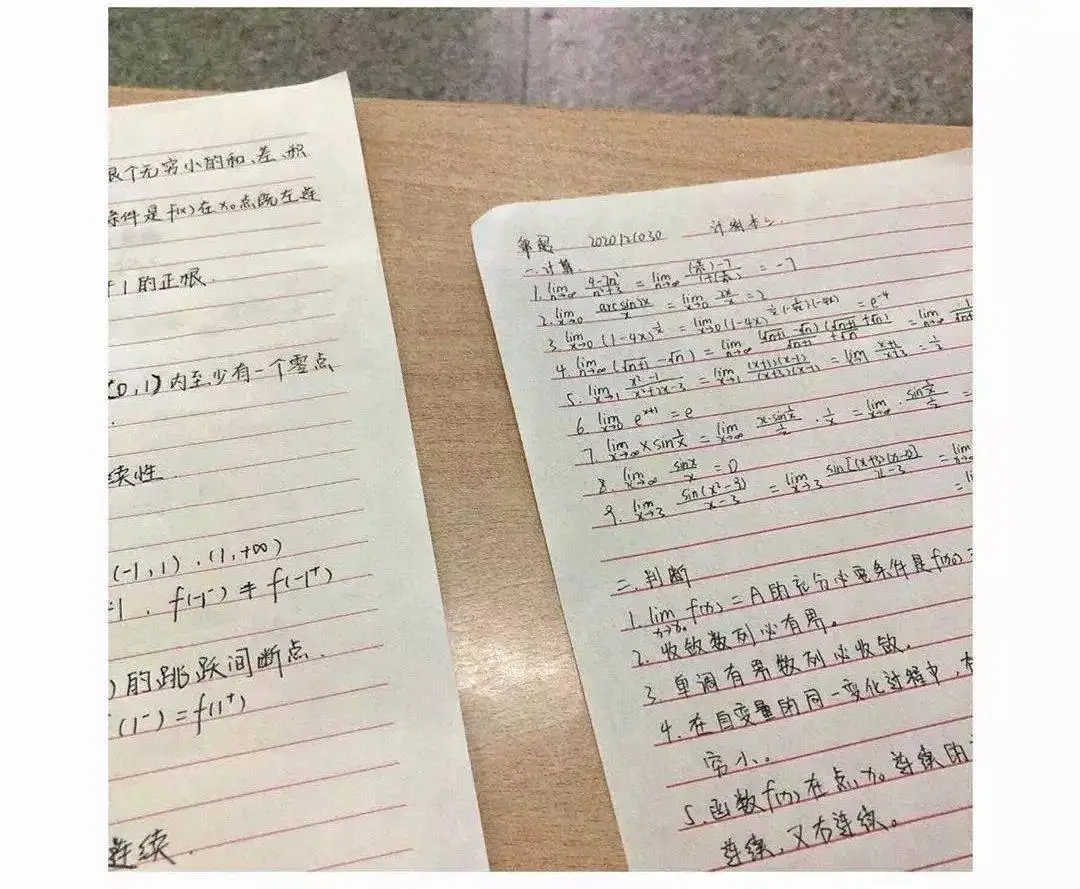 限个无穷小的和、差、积
条件是f(x)在x₀点既左连
+1的正根.
(0,1)内至少有一个零点
续性.
(-1,1).(1,+∞)
f(-1⁻)≠f(-1⁺)
)的跳跃间断点.
(1⁻)=f(1⁺)
连续.
2020121030
一.计算.
1. lim n→∞ (4-7n²)/(n²+3) = lim n→∞ = -7
2. lim x→0 (arcsin2x)/x = lim x→0 2x/x = 2
3. lim x→0 (1-4x)^(1/x) = lim x→0 (1-4x) = e⁻⁴
4. lim n→∞ (√(n+1) - √n) = lim n→∞ = lim n→∞
5. lim x→1 (x²-1)/(x²+2x-3) = lim x→1 ((x+1)(x-1))/((x+3)(x-1)) = lim x→1 (x+1)/(x+3) = 1/2
6. lim x→0 e^(x+1) = e
7. lim x→∞ x sin(1/x) = lim x→∞ = lim x→∞
8. lim x→∞ (sinx)/x = 0
9. lim x→3 (sin(x²-9))/(x-3) = lim x→3 (sin[(x+3)(x-3)])/(x-3) = lim
= li
二.判断
1. lim x→x₀ f(x) = A的充分必要条件是f(x₀)=
2. 收敛数列必有界。
3. 单调有界数列必收敛.
4. 在自变量的同一变化过程中,
穷小。
5. 函数f(x)在点x₀连续的
连续,又右连续。